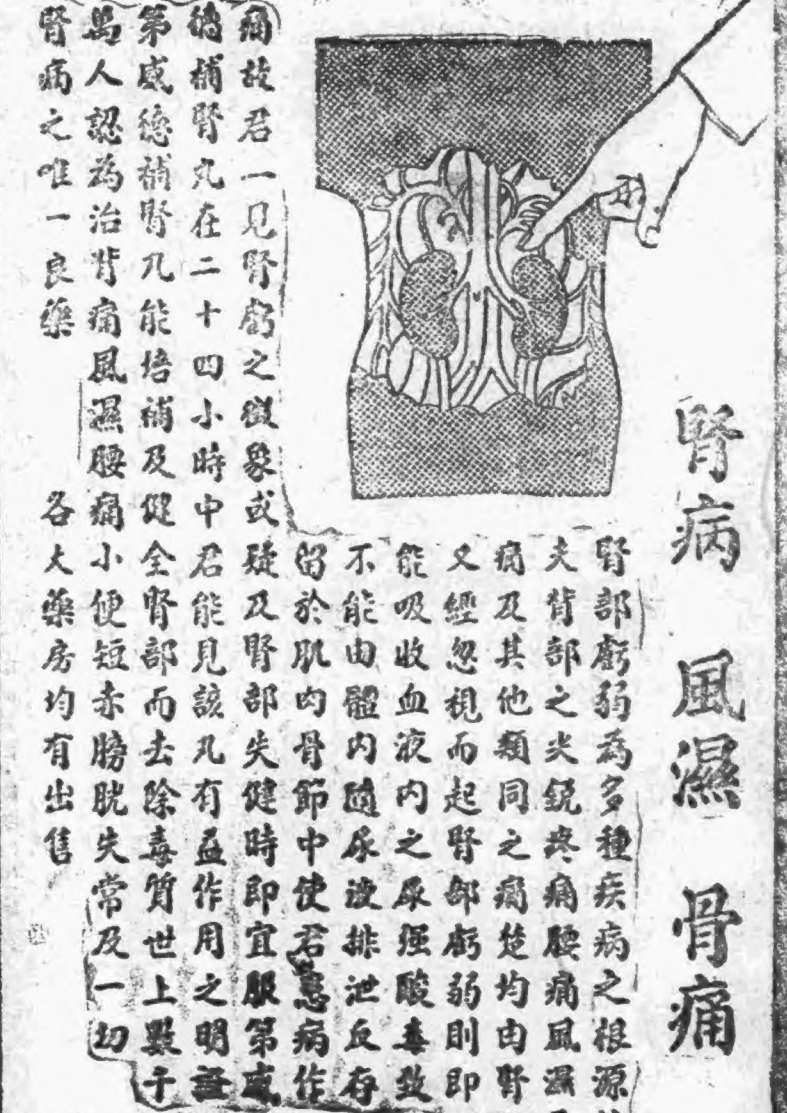 腎病　風濕　骨痛
腎部虧弱為多種疾病之根源
夫背部之尖銳疼痛腰痛風濕
痛及其他類同之痛楚均由腎
又經忽視而起腎部虧弱則即
能吸收血液内之尿强酸毒致
不能由體内隨尿液排泄反存
留於肌肉骨節中使君患病作
痛故君一見腎虧之徵象或疑及腎部失健時即宜服第威
德補腎丸在二十四小時中君能見該丸有益作用之明證
第威德補腎丸能培補及健全腎部而去除毒質世上數千
萬人認為治背痛風濕腰痛小便短赤膀胱失常及一切
腎病之唯一良藥　各大藥房均有出售